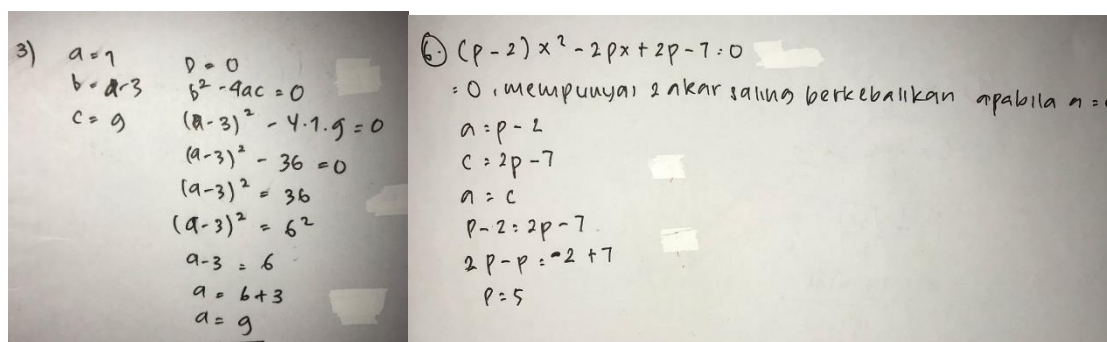 3)
a = 1
b = a-3
c = 9
D = 0
b² - 4ac = 0
(a-3)² - 4.1.9 = 0
(a-3)² - 36 = 0
(a-3)² = 36
(a-3)² = 6²
a-3 = 6
a = 6+3
a = 9
6. (p-2) x² - 2px + 2p - 7 = 0
= 0, mempunyai 2 akar saling berkebalikan apabila a =
a = p-2
c = 2p-7
a = c
p-2 = 2p-7
2p-p = -2+7
p = 5